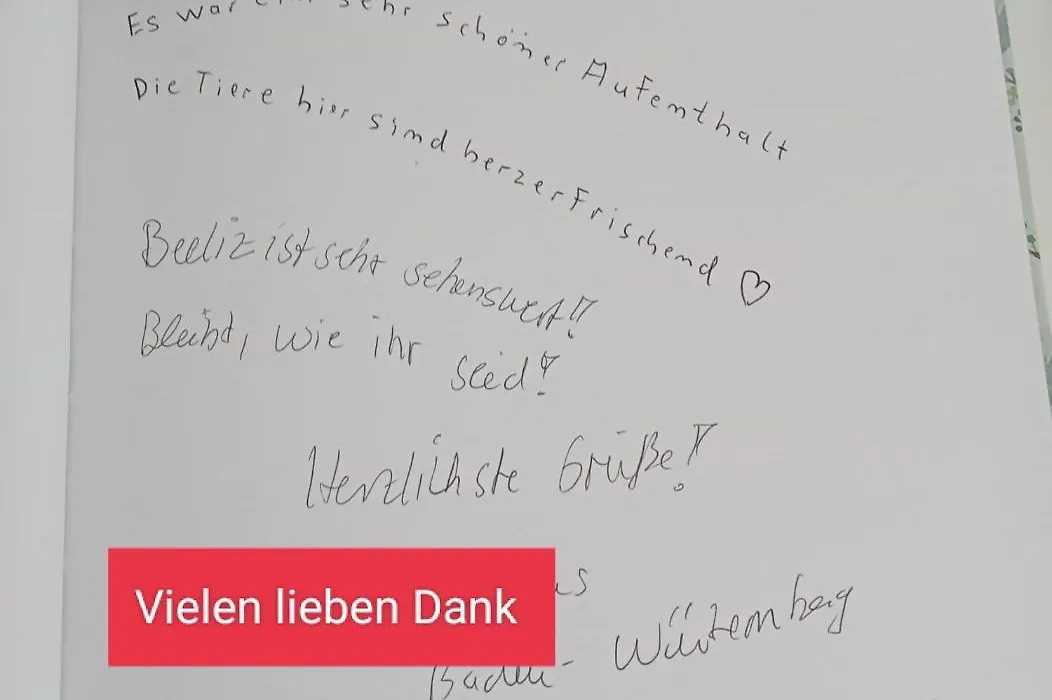 Es war ein sehr schöner Aufenthalt
Die Tiere hier sind herzerfrischend ♡
Beeliz ist sehr sehenswert!!
Bleibt, wie ihr seid!
Herzlichste Grüße!!
Vielen lieben Dank
Baden-Würtemberg